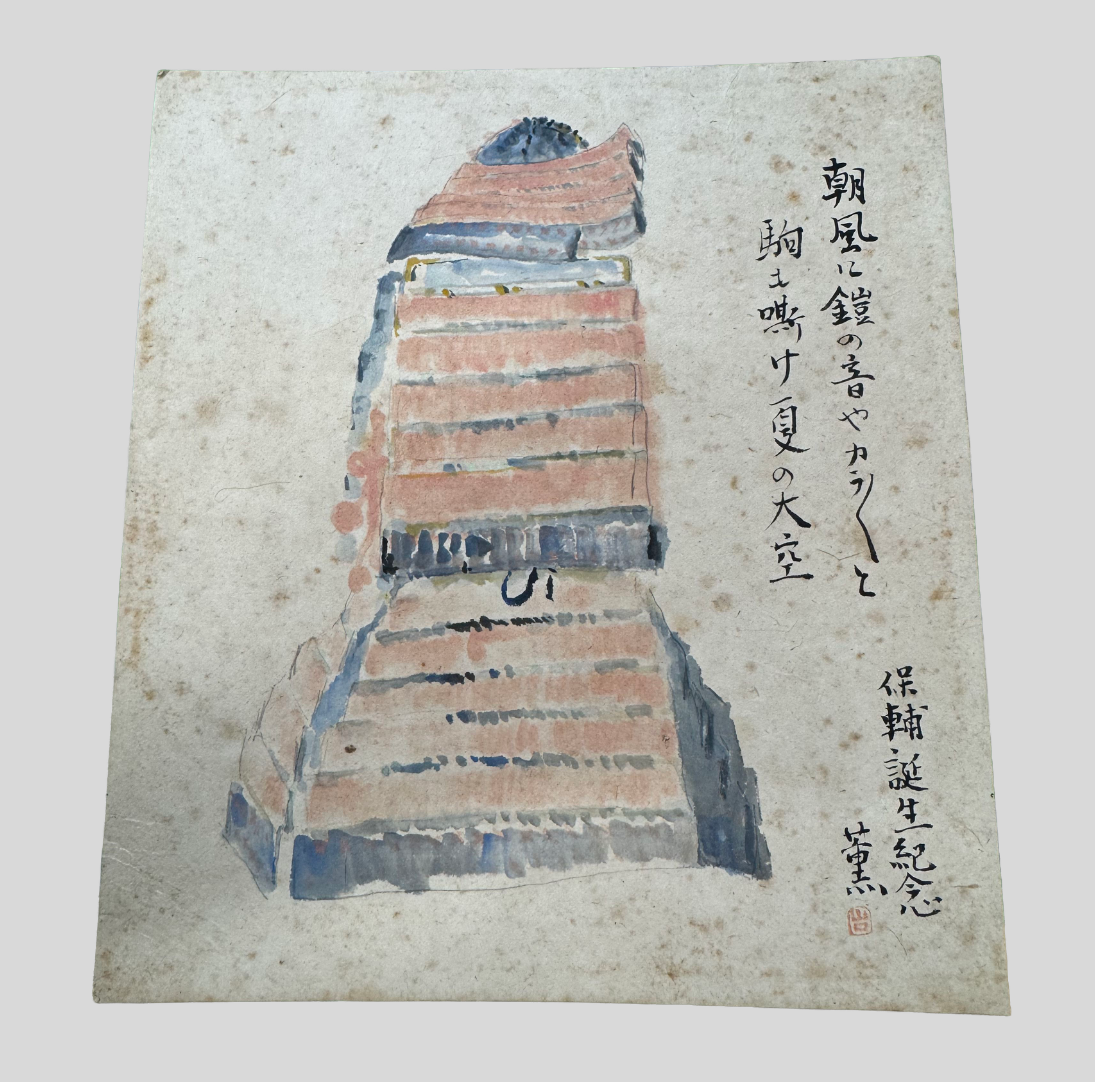 朝風に鎧の音やカラ〱と
駒も嘶け夏の大空
保輔誕生紀念
薫